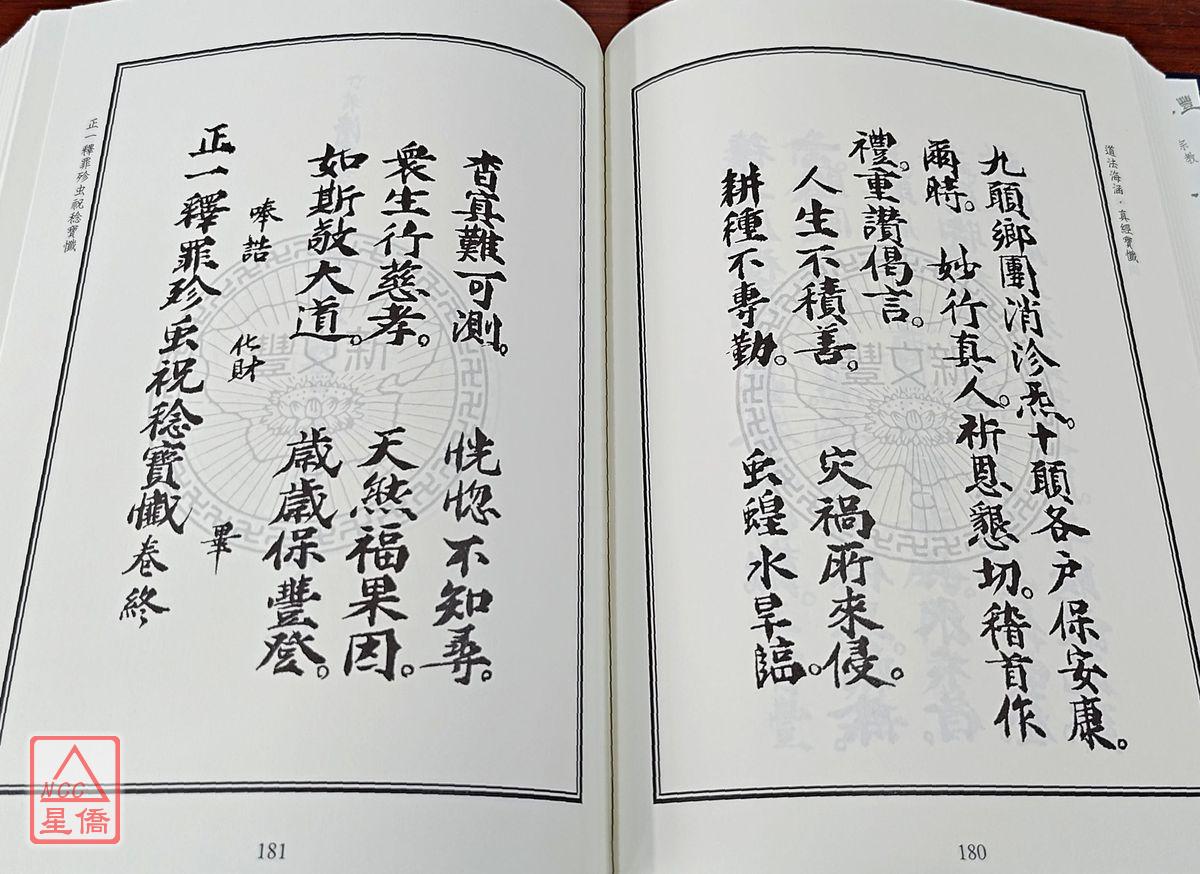 道法海涵・真經寶懺
九願鄉團消沴炁。十願各戶保安康。
爾時。妙行真人。祈恩懇切。稽首作
禮。重讚偈言。
人生不積善。灾禍所來侵。
耕種不專勤。虫蝗水旱臨。
180
杳冥難可測。恍惚不知尋。
衆生行慈孝。天然福果因。
如斯敬大道。歲歲保豐登。
奉誥 化財 畢
正一釋罪殄虫祝稔寶懺卷終
正一釋罪殄虫祝稔寶懺
181
新文豐
新文豐
豐
宗教
NCC
星僑